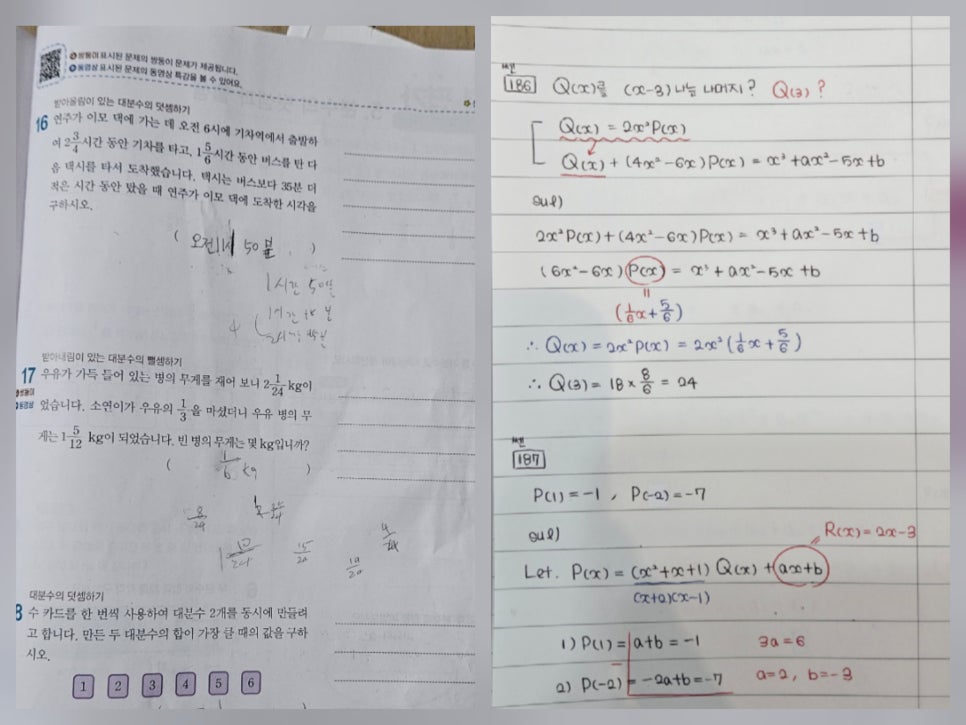 쌍둥이 표시된 문제의 쌍둥이 문제가 제공됩니다.
동영상 표시된 문제의 동영상 특강을 볼 수 있어요.
받아올림이 있는 대분수의 덧셈하기
16 연주가 이모 댁에 가는 데 오전 6시에 기차역에서 출발하
여 2 3/4시간 동안 기차를 타고, 1 5/6시간 동안 버스를 탄 다
음 택시를 타서 도착했습니다. 택시는 버스보다 35분 더
적은 시간 동안 탔을 때 연주가 이모 댁에 도착한 시각을
구하시오.
( 오전 11시 50분 )
1시간 50분
4
받아내림이 있는 대분수의 뺄셈하기
17 우유가 가득 들어 있는 병의 무게를 재어 보니 2 1/24 kg이
쌍둥이
동영상
었습니다. 소연이가 우유의 1/3을 마셨더니 우유 병의 무
게는 1 5/12 kg이 되었습니다. 빈 병의 무게는 몇 kg입니까?
( 1/6 kg )
8/24
15/20
대분수의 덧셈하기
8 수 카드를 한 번씩 사용하여 대분수 2개를 동시에 만들려
고 합니다. 만든 두 대분수의 합이 가장 클 때의 값을 구하
시오.
1 2 3 4 5 6
쎈
186 Q(x)를 (x-3) 나눔 나머지? Q(3)?
Q(x) = 2x²P(x)
Q(x) + (4x²-6x)P(x) = x³+ax²-5x+b
sul)
2x²P(x)+(4x²-6x)P(x) = x³+ax²-5x+b
(6x²-6x)P(x) = x³+ax²-5x+b
=
(1/6x+5/6)
∴ Q(x) = 2x²P(x) = 2x²(1/6x+5/6)
∴ Q(3) = 18 × 8/6 = 24
쎈
187
P(1) = -1, P(-2) = -7
sul)
R(x) = 2x-3
Let. P(x) = (x²+x+1) Q(x) + (ax+b)
(x+2)(x-1)
1) P(1) = a+b = -1 3a = 6
2) P(-2) = -2a+b = -7 a=2, b=-3